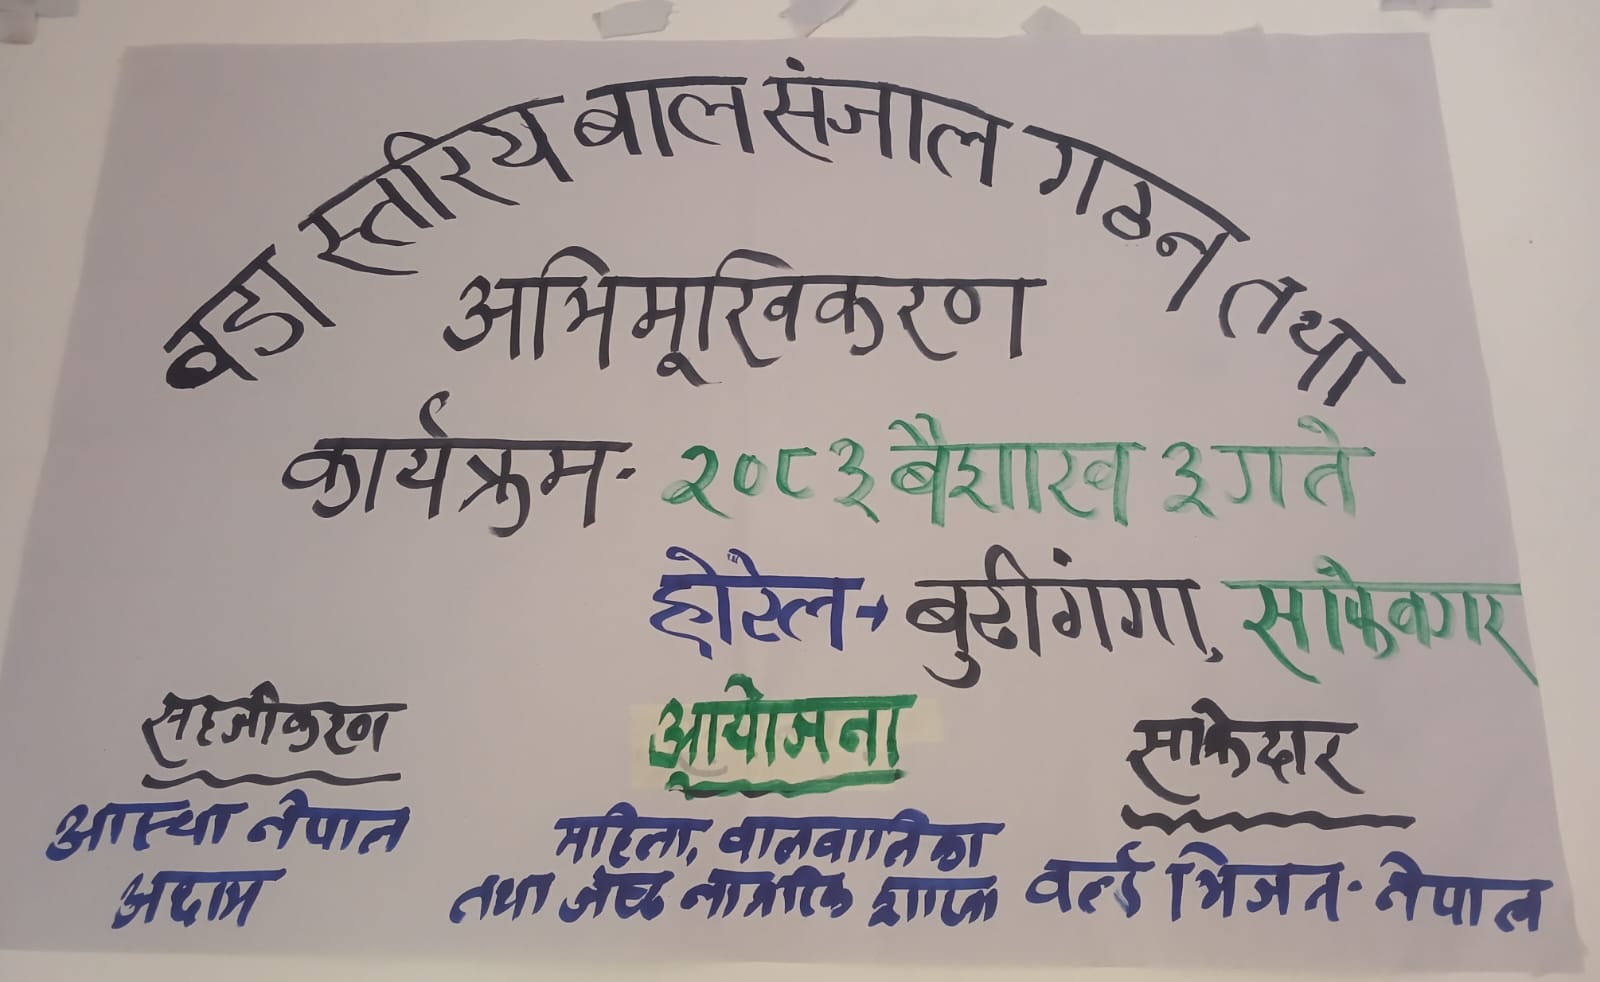 वडा स्तरिय बाल संजाल गठन तथा
अभिमूखिकरण
कार्यक्रम- २०८३ बैशाख ३ गते
होटेल→ बुढीगंगा, साँफेबगर
सहजीकरण
आयोजना
साझेदार
आस्था नेपाल
अछाम
महिला, बालबालिका
तथा जेष्ठ नागरिक शाखा
वर्ल्ड भिजन- नेपाल